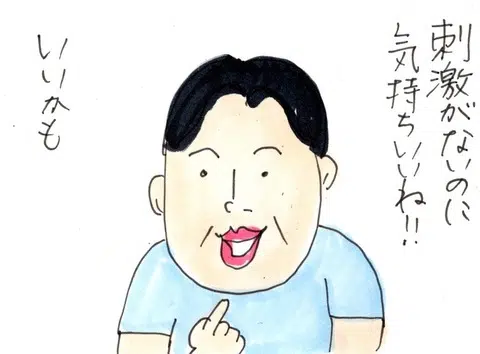 刺激がないのに
気持ちいいね!!
いいかも